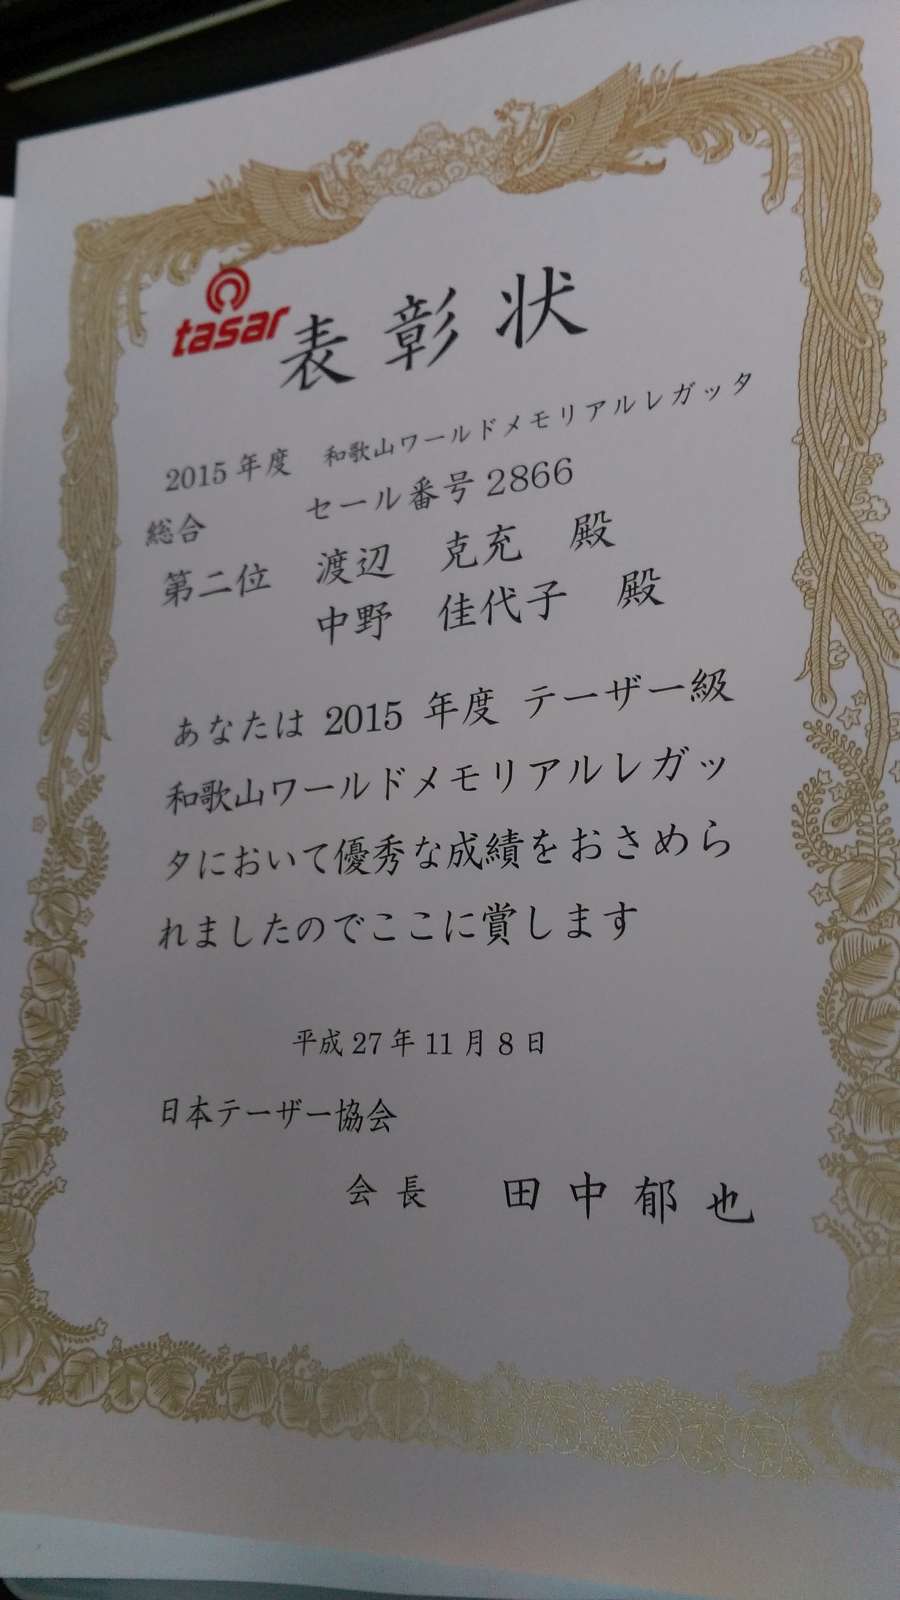 tasar
表彰状
2015年度 和歌山ワールドメモリアルレガッタ
総合 セール番号2866
第二位 渡辺 克充 殿
中野 佳代子 殿
あなたは 2015 年度 テーザー級
和歌山ワールドメモリアルレガッ
タにおいて優秀な成績をおさめら
れましたのでここに賞します
平成27年11月8日
日本テーザー協会
会長 田中郁也